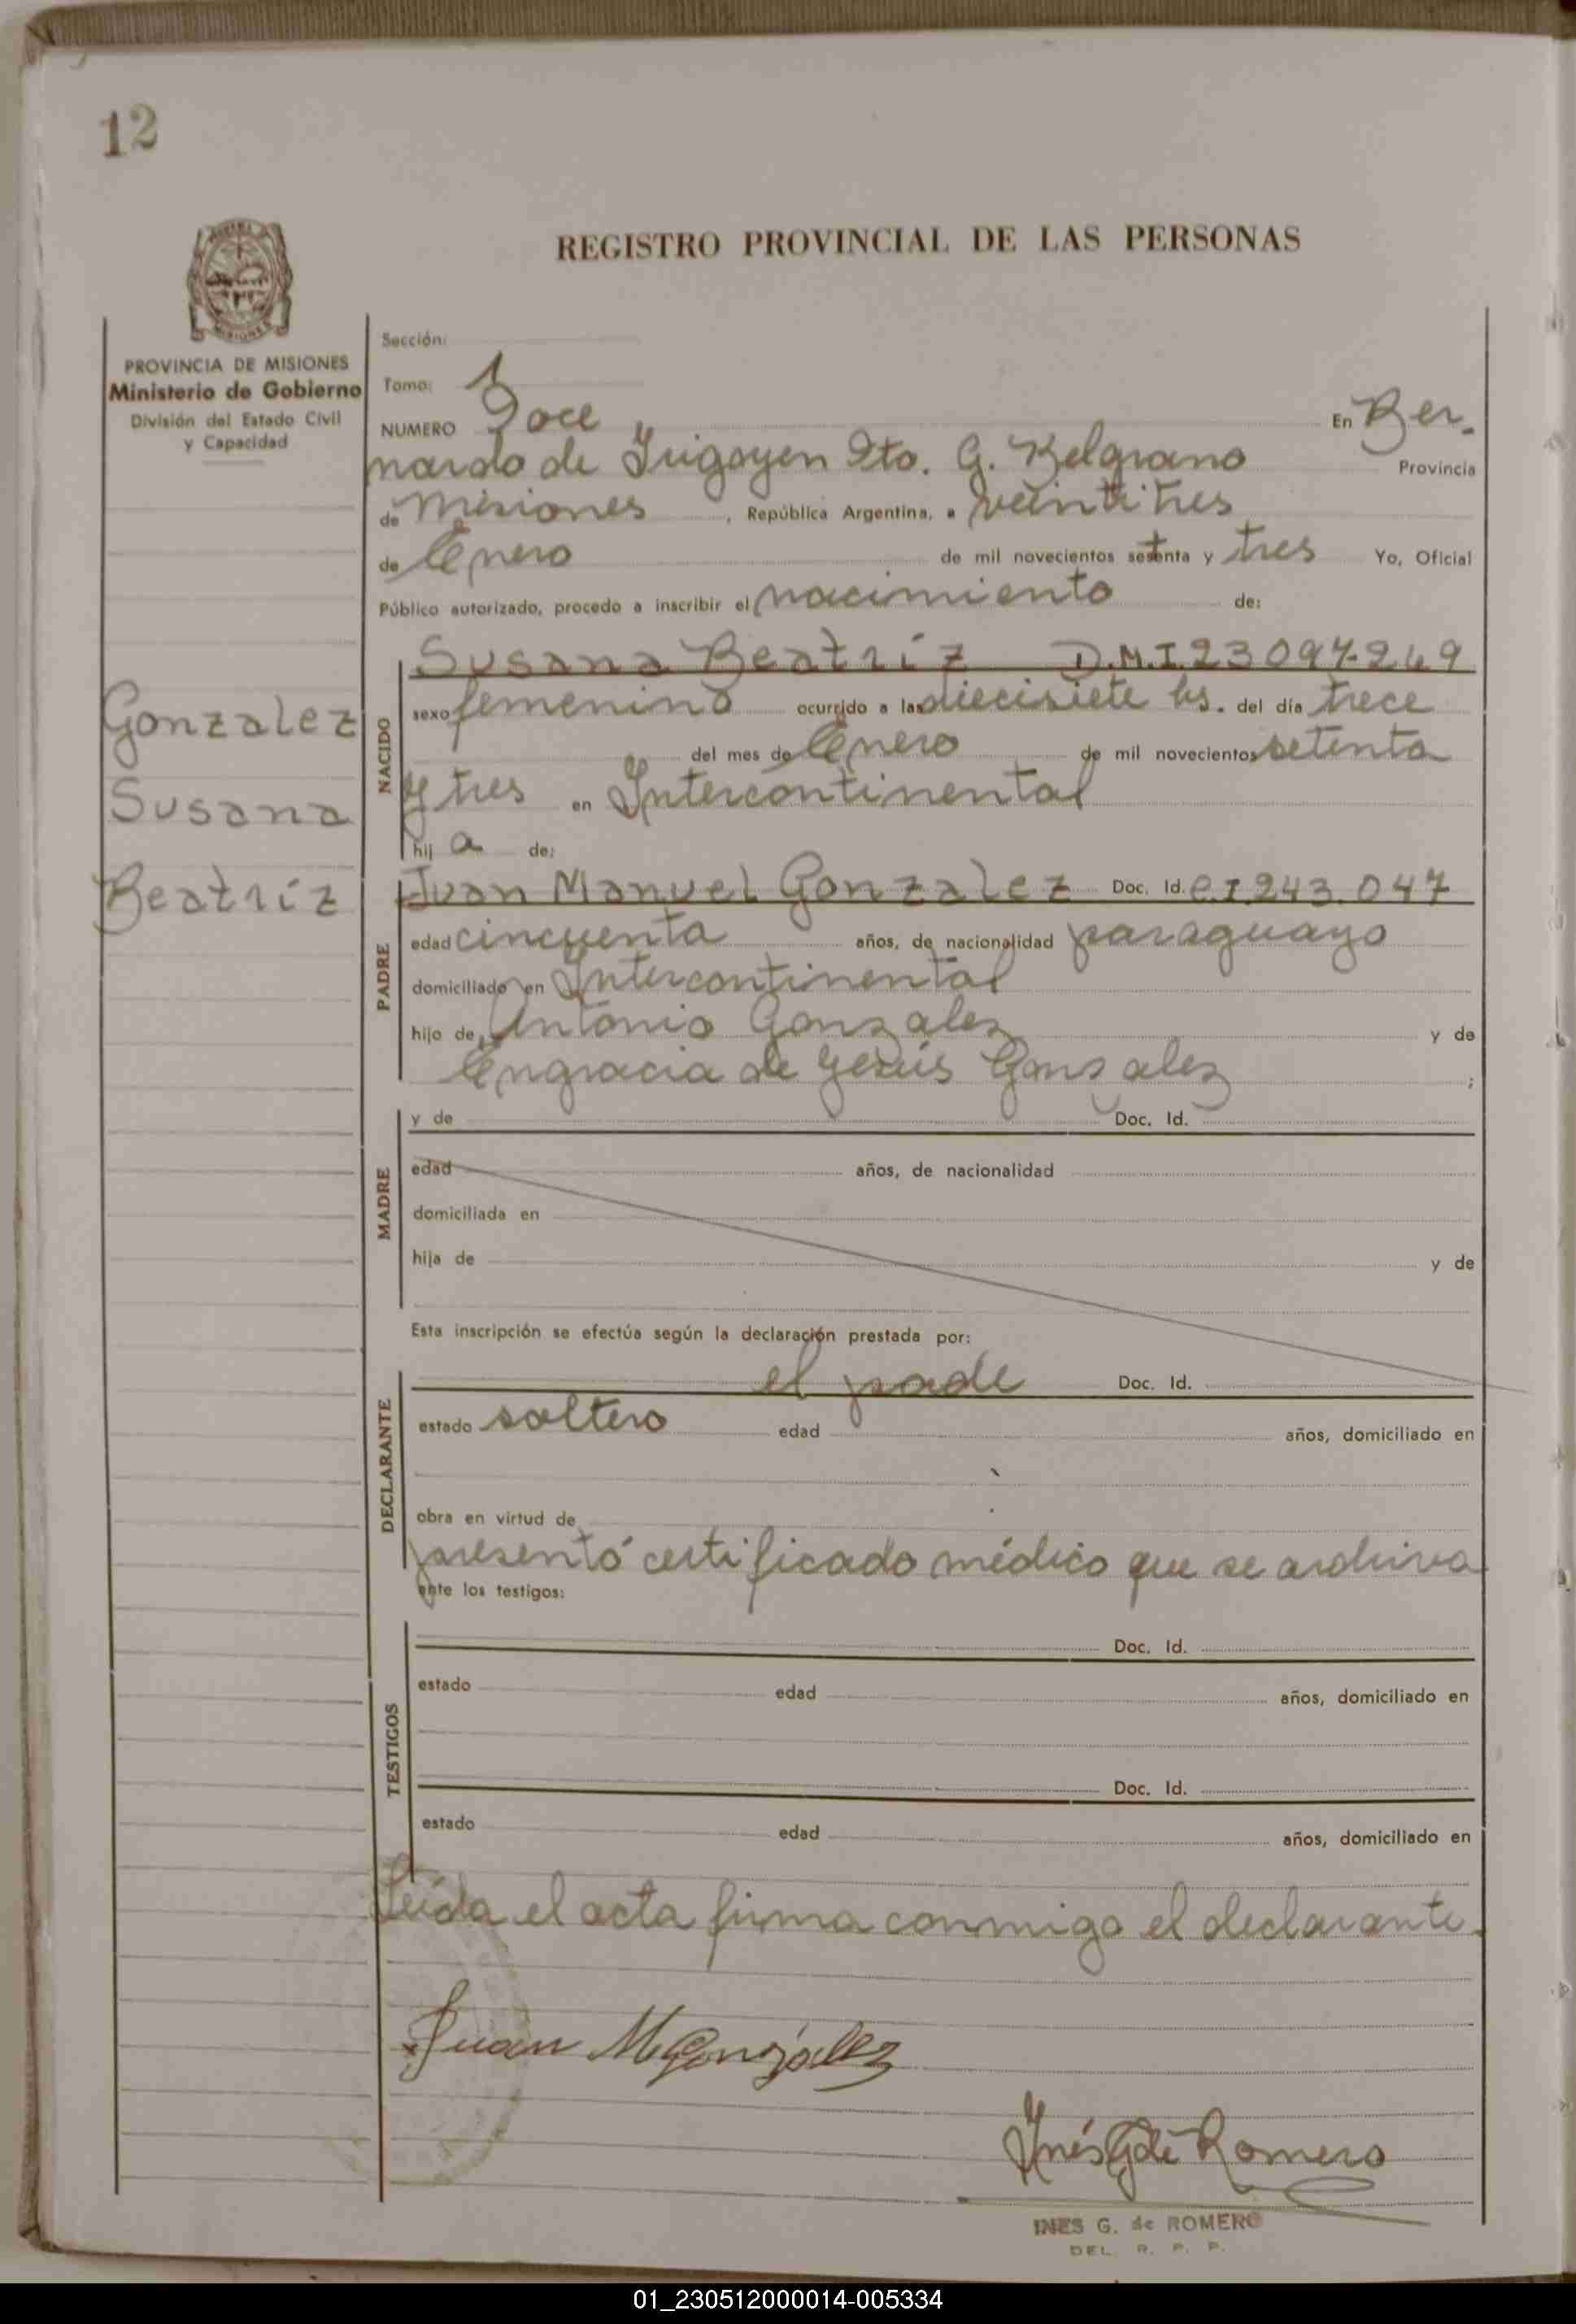 12
REGISTRO PROVINCIAL DE LAS PERSONAS
PROVINCIA DE MISIONES
Ministerio de Gobierno
División del Estado Civil
y Capacidad
Gonzalez
Susana
Beatríz
Sección:
Tomo: 1
NUMERO Doce En Ber-
nardo de Irigoyen Dto. G. Belgrano Provincia
de Misiones , República Argentina, a veintitres
de Enero de mil novecientos setenta y tres Yo, Oficial
Público autorizado, procedo a inscribir el nacimiento de:
NACIDO
Susana Beatríz D.M.I. 23.097.269
sexo femenino ocurrido a las diecisiete hs. del día trece
del mes de Enero de mil novecientos setenta
y tres en Intercontinental
hij a de:
PADRE
Juan Manuel Gonzalez Doc. Id. C.I. 243.047
edad cincuenta años, de nacionalidad paraguayo
domiciliado en Intercontinental
hijo de Antonio Gonzalez y de
Engracia de Jesús Gonzalez ;
MADRE
y de Doc. Id.
edad años, de nacionalidad
domiciliada en
hija de y de
Esta inscripción se efectúa según la declaración prestada por:
DECLARANTE
el padre Doc. Id.
estado soltero edad años, domiciliado en
obra en virtud de
presentó certificado médico que se archiva
ante los testigos:
TESTIGOS
Doc. Id.
estado edad años, domiciliado en
Doc. Id.
estado edad años, domiciliado en
Leída el acta firma conmigo el declarante.
Juan M Gonzalez
Inés G de Romero
INES G. de ROMERO
DEL. R. P. P.
01_230512000014-005334